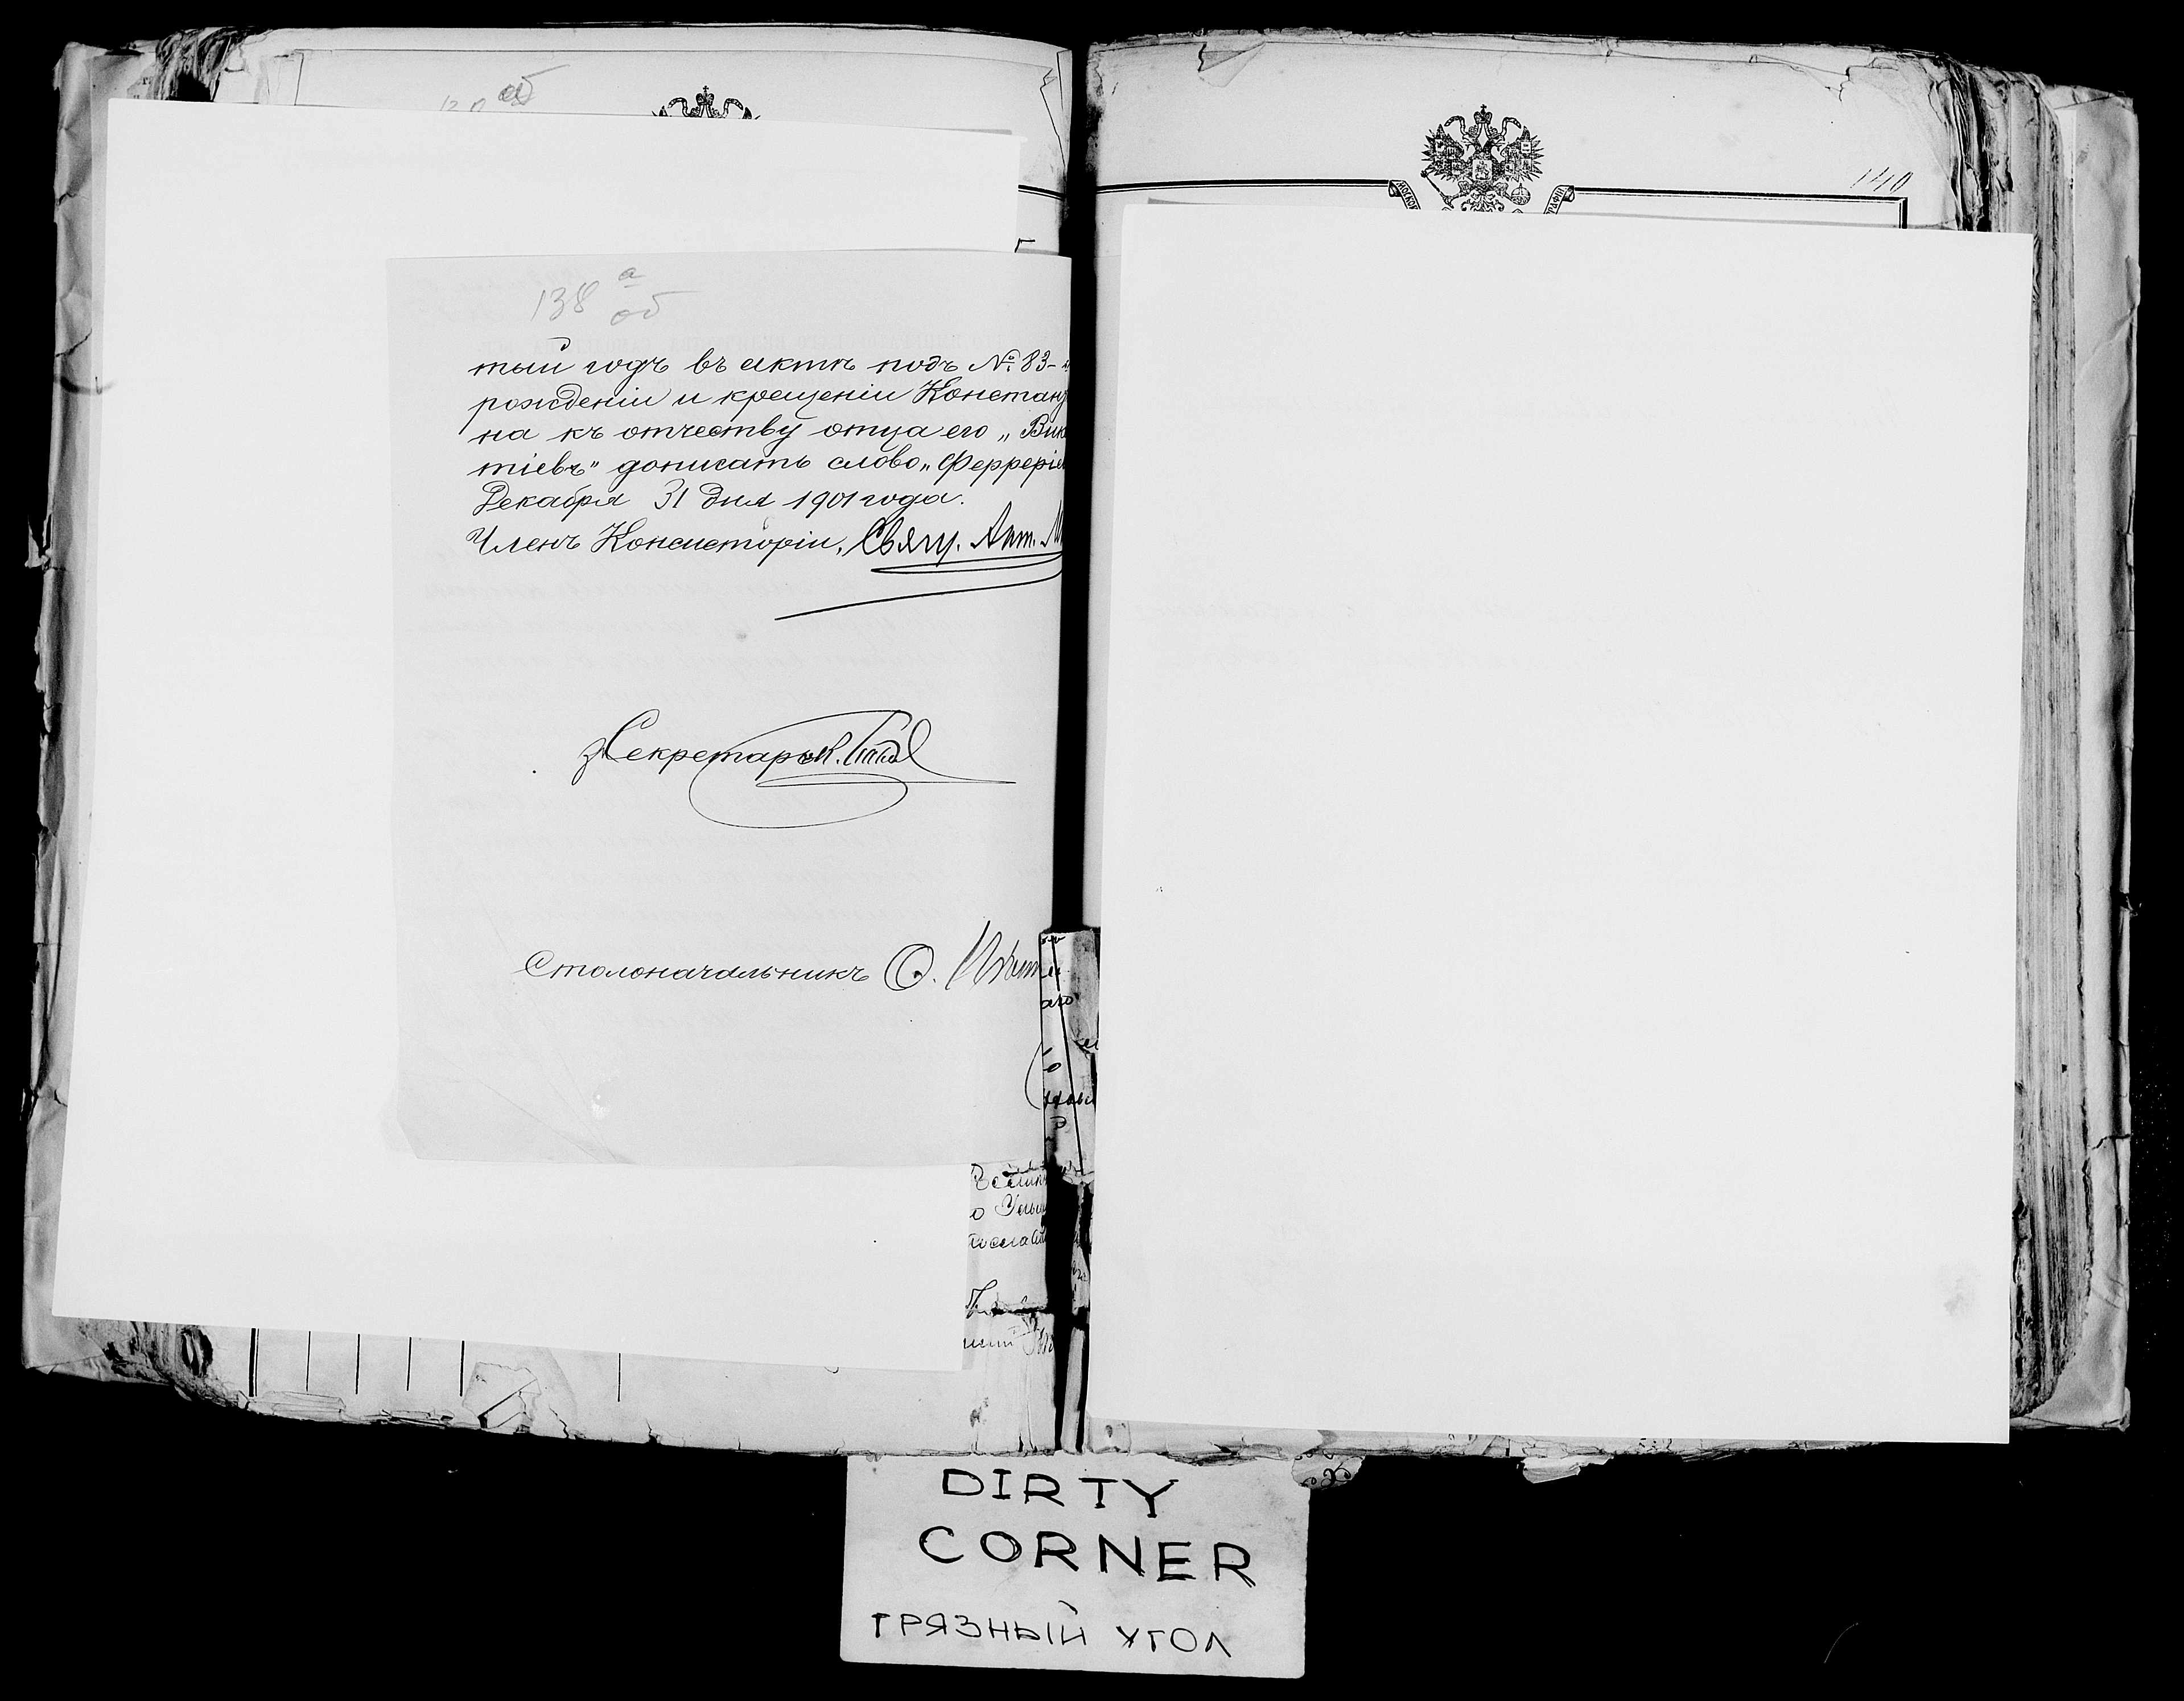 138 а
об
тый годъ въ актѣ подъ № 83-
рожденіи и крещеніи Констан
на къ отчеству отца его „Вик
тіевъ" дописать слово „Феррерie
Декабря 31 дня 1901 года.
Членъ Консисторіи, Свящ. Ант.
Секретарь
Столоначальникъ О.
140
DIRTY
CORNER
ГРЯЗНЫЙ УГОЛ